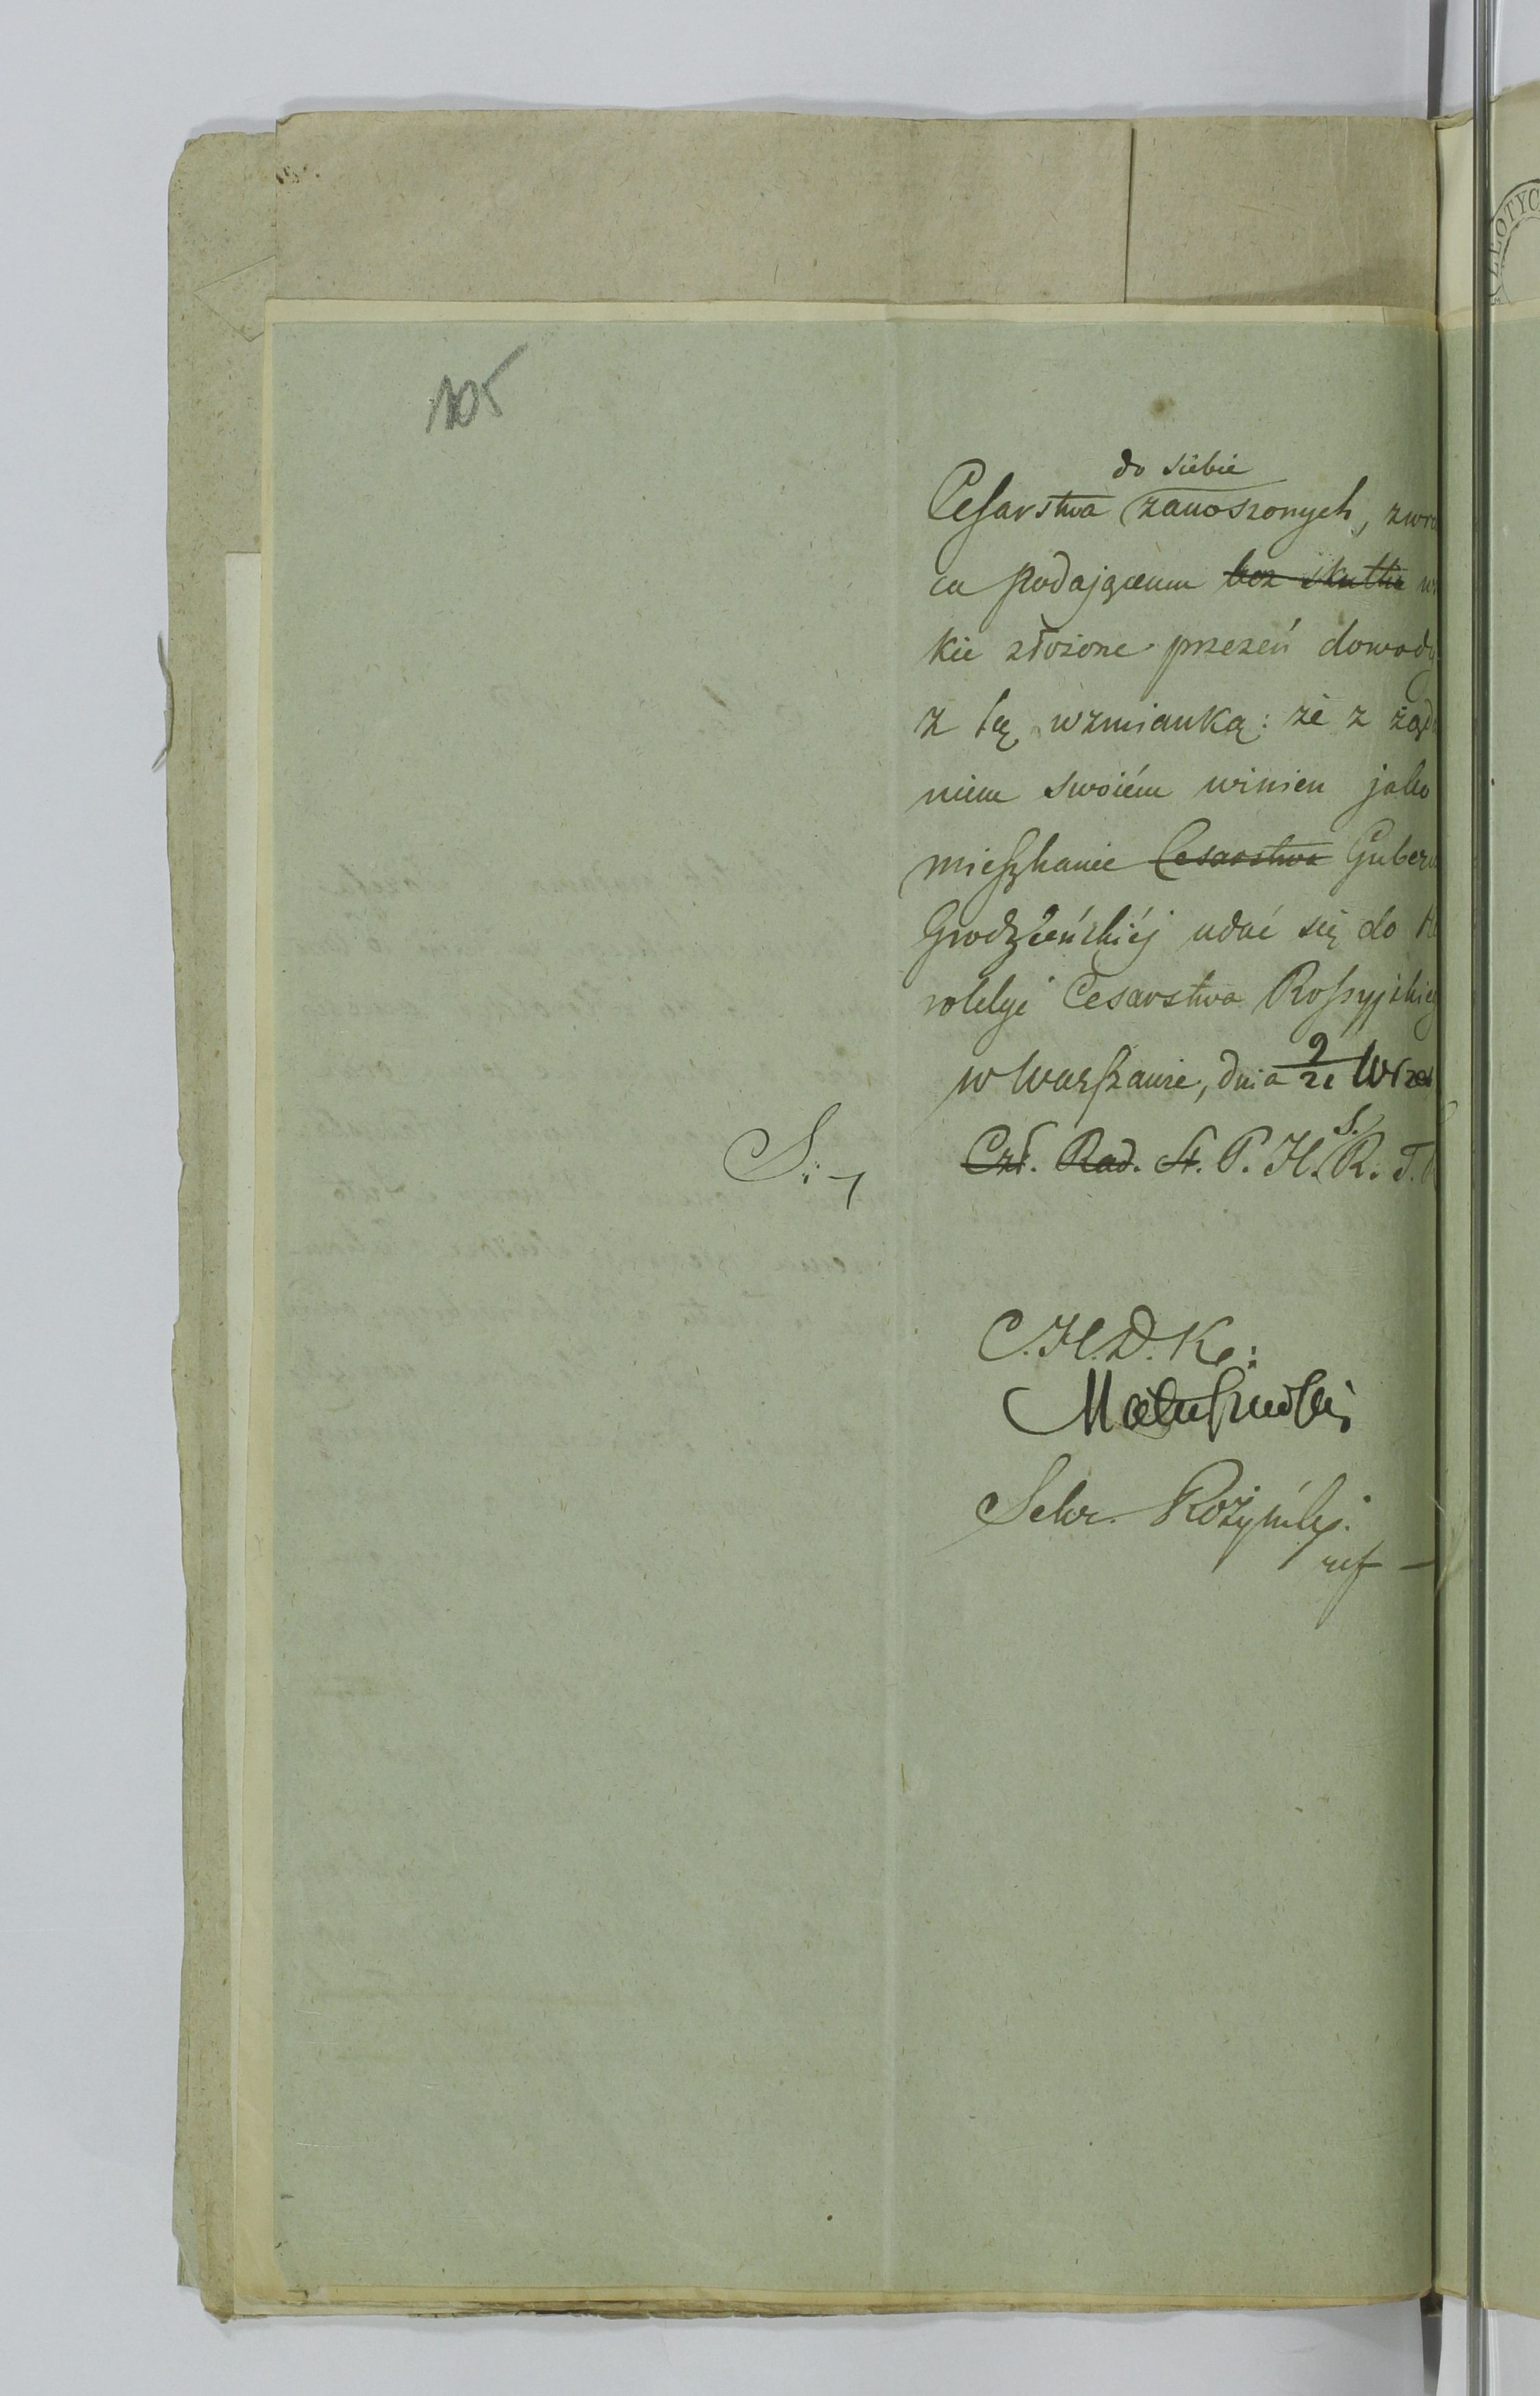 105
do siebie
Cesarstwa zanoszonych, zwra
ca podającemu bez skutku
kie złożone przezeń dowody
z tą wzmianką: że z żąda
niem swoiém winien jako
mieszkaniec Cesarstwa Gubern
Grodzieńskiéj udać się do
roldyi Cesarstwa Rossyjskieg
w Warszawie, dnia 9/21 Wrześ
S. Czł. Rad. St. P. H. S. R. T.
C. H. D. K.:
Matuszewski
Sekr. Rożyński
ŁOTYC